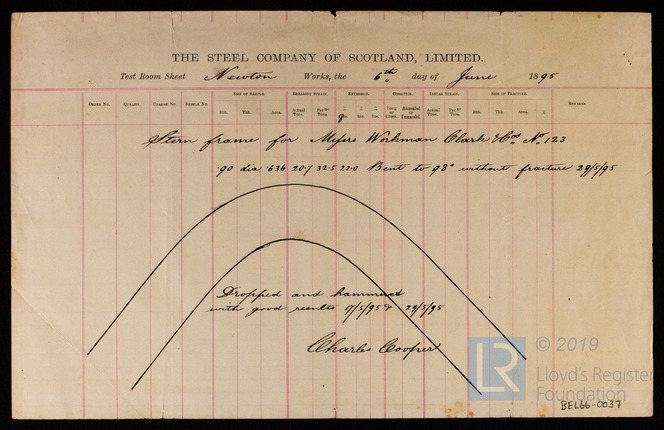 THE STEEL COMPANY OF SCOTLAND, LIMITED.
Test Room Sheet Newton Works, the 6th day of June 1895
SIZE OF SAMPLE. BREAKING STRAIN. EXTENSION. CONDITION. INITIAL STRAIN. SIZE OF FRACTURE.
ORDER NO. QUALITY. CHARGE NO. SAMPLE NO. Bth. Tth. Area. Actual Tons. Per □" Tons. 8 Ins. Ins. Long or Cross. Annealed or Unannealed. Actual Tons. Per □" Tons. Bth. Tth. Area. REMARKS.
Stern frame for Messrs Workman Clark & Cos No 123
.90 dia .636 20.7 32.5 22.0 Bent to 98° without fracture 29/5/95
Dropped and hammered
with good results 17/5/95 & 29/5/95
Charles Cooper
LR © 2019
Lloyd's Register
Foundation
BEL66-0037